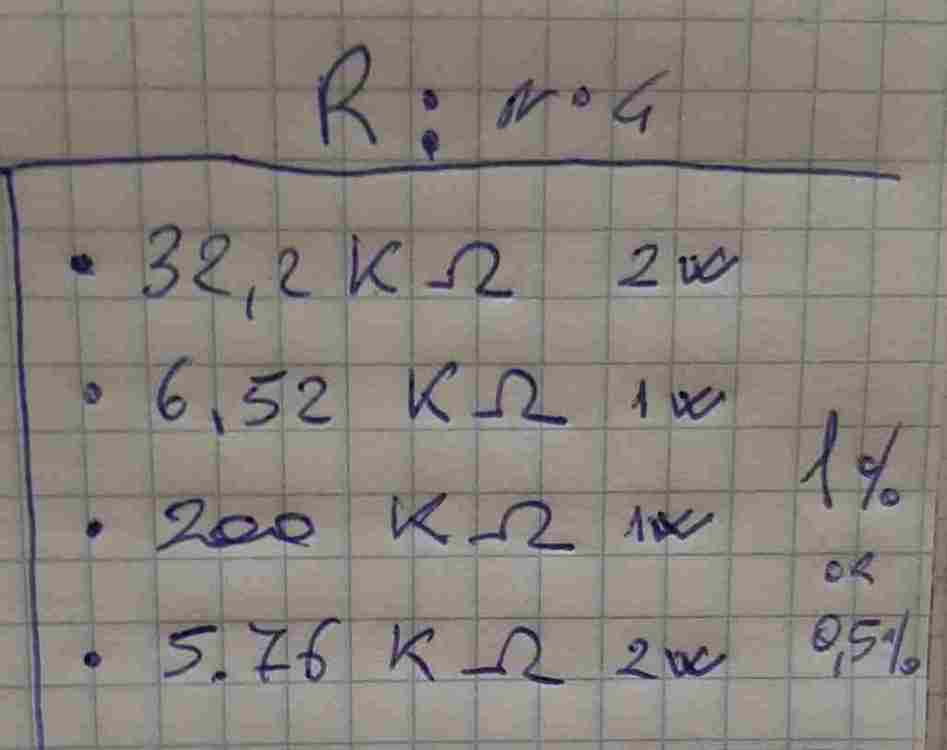 R: n°4
• 32,2 KΩ 2x
• 6,52 KΩ 1x
• 200 KΩ 1x
• 5.76 KΩ 2x
1%
OR
0,5%